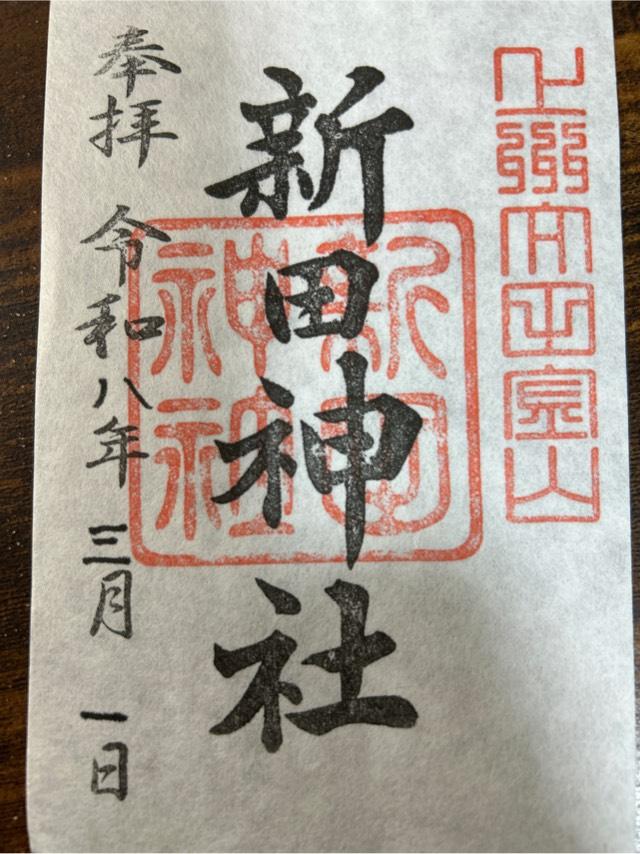 上州太田金山
新田神社
新田
神社
奉拝 令和八年 三月 一日